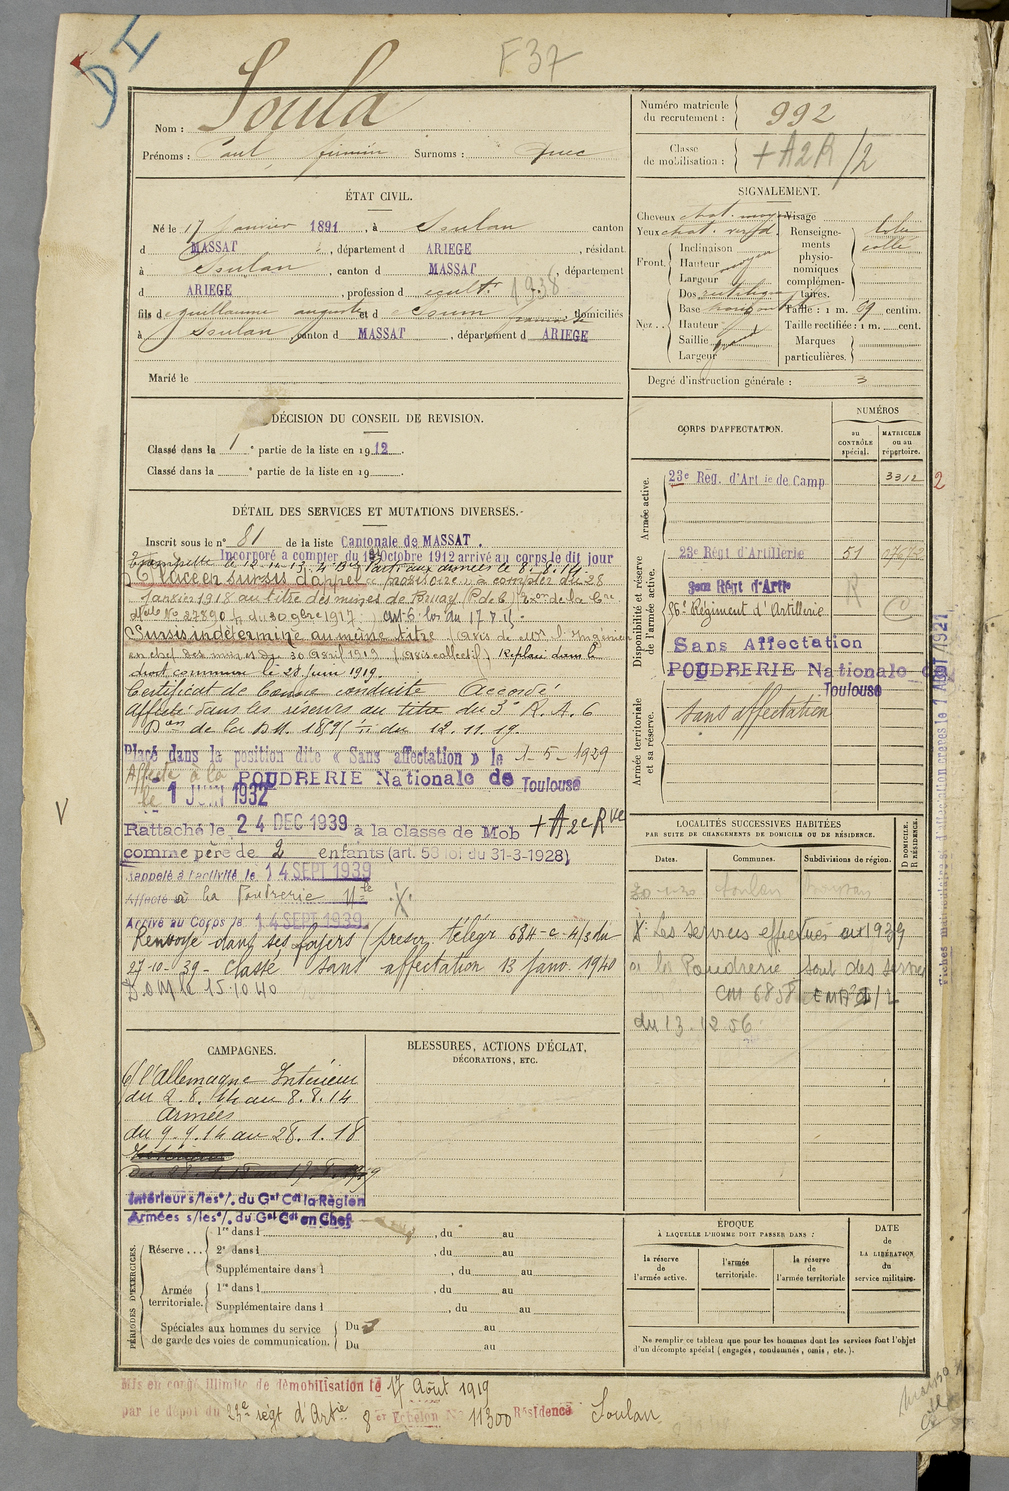 DI
F 37
Nom : Soula
Prénoms : Paul, firmin Surnoms :
Numéro matricule du recrutement : 992
Classe de mobilisation : + A2R/2
ÉTAT CIVIL.
Né le 17 Janvier 1891, à Soulan canton
d MASSAT, département d ARIEGE, résidant
à Soulan, canton d MASSAT, département
d ARIEGE, profession d cultr. 1938
fils de guillaume auguste et d domiciliés
à Soulan canton d MASSAT, département d ARIEGE
Marié le
SIGNALEMENT.
Cheveux chat. moy Visage
Yeux chat.
Renseignements physionomiques complémentaires.
Front. Inclinaison
Hauteur moyen
Largeur
Nez. Dos rectiligne
Base
Hauteur
Saillie
Largeur
Taille : 1 m. 69 centim.
Taille rectifiée : 1 m. cent.
Marques particulières.
Degré d'instruction générale : 3
DÉCISION DU CONSEIL DE REVISION.
Classé dans la 1e partie de la liste en 1912.
Classé dans la e partie de la liste en 19
DÉTAIL DES SERVICES ET MUTATIONS DIVERSES.
Inscrit sous le n° 81 de la liste Cantonale de MASSAT.
Incorporé a compter du Octobre 1912 arrivé au corps le dit jour
Trompette le 12-11-13. Parti aux armées le 8.8.14.
Placé en sursis d'appel à compter du 28
Janvier 1918 au titre des mines de Bruay (P de C)
Nelle No 27890 du 30 9bre 1917. art 6 loi du 17.8.15
Sursis indeterminé au même titre (avis de Mr l'Ingénieur
en chef des mines du 30 avril 1919 (avis collectif) Replacé dans le
droit commun le 28 Juin 1919.
Certificat de bonne conduite accordé
Affecté dans les réserves au titre du 3e R. A. C
Don de la DM. 1895 du 12.11.19.
Placé dans la position dite « Sans affectation » le 1-5-1929
Affecté à la POUDRERIE Nationale de Toulouse
le 1 JUIN 1932
Rattaché le 24 DEC 1939 à la classe de Mob + A2e Rve
comme père de 2 enfants (art. 58 loi du 31-3-1928)
rappelé à l'activité le 14 SEPT 1939
Affecté à la Poudrerie Nle X
Arrivé au Corps le 14 SEPT 1939
Renvoyé dans ses foyers (prescr. télégr 684-c-4/3 du
27-10-39- Classé sans affectation 13 Janv. 1940
D.O.M. le 15 10 40
CORPS D'AFFECTATION.
NUMÉROS
au CONTRÔLE spécial.
MATRICULE ou au répertoire.
Armée active.
23e Rég. d'Artie de Camp 3312
2
Disponibilité et réserve de l'armée active.
23e Régt d'Artillerie 51
Régt d'Artie
Régiment d'Artillerie
Sans Affectation
POUDRERIE Nationale de Toulouse
Armée territoriale et sa réserve.
sans affectation
LOCALITÉS SUCCESSIVES HABITÉES
PAR SUITE DE CHANGEMENTS DE DOMICILE OU DE RÉSIDENCE.
Dates. Communes. Subdivisions de région. D DOMICILE. R RÉSIDENCE.
Soulan
X Les services effectués en 1939
à la Poudrerie sont des services
CM 6858
du 13.12 56
CAMPAGNES.
C/ l'Allemagne Intérieur
du 2.8.14 au 8.8.14
Armées
du 9.9.14 au 28.1.18
Intérieur s/les o/. du Gal Cdt la Région
Armées s/les o/. du Gal Cdt en Chef
BLESSURES, ACTIONS D'ÉCLAT,
DÉCORATIONS, ETC.
PÉRIODES D'EXERCICES.
Réserve ... 1re dans l , du au
2e dans l , du au
Supplémentaire dans l , du au
Armée territoriale. 1re dans l , du au
Supplémentaire dans l , du au
Spéciales aux hommes du service de garde des voies de communication. Du au
Du au
ÉPOQUE
À LAQUELLE L'HOMME DOIT PASSER DANS :
la réserve de l'armée active.
l'armée territoriale.
la réserve de l'armée territoriale
DATE de LA LIBÉRATION du service militaire.
Ne remplir ce tableau que pour les hommes dont les services font l'objet
d'un décompte spécial (engagés, condamnés, omis, etc.).
Mis en congé illimité de démobilisation le 17 Août 1919
par le dépôt du 23e régt d'Artie 8e Echelon No 11300 Résidence Soulan